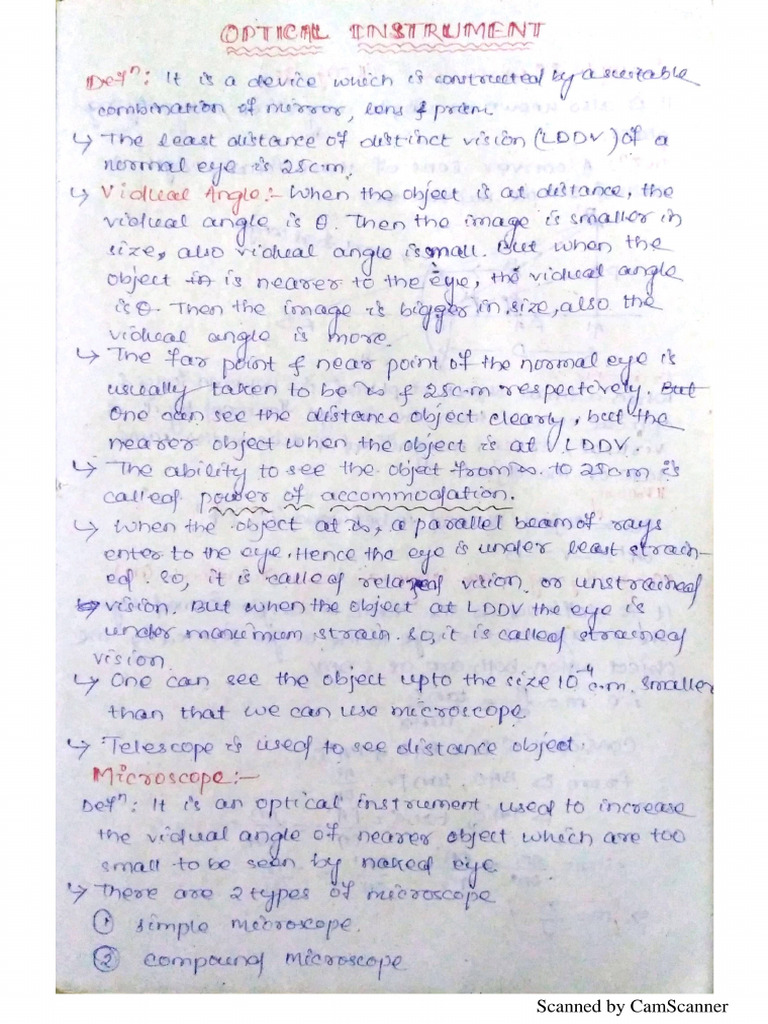 OPTICAL INSTRUMENT
Defⁿ: It is a device which is constructed by a suitable
combination of mirror, lens & prism.
↳ The least distance of distinct vision (LDDV) of a
normal eye is 25cm.
↳ Vidual Angle:- When the object is at distance, the
vidual angle is θ. Then the image is smaller in
size, also vidual angle is small. But when the
object is nearer to the eye, the vidual angle
is θ. Then the image is bigger in size, also the
vidual angle is more.
↳ The far point & near point of the normal eye is
usually taken to be ∞ & 25cm respectively. But
One can see the distance object clearly, but the
nearer object when the object is at LDDV.
↳ The ability to see the object from ∞ to 25cm is
called power of accommodation.
↳ When the object at ∞, a parallel beam of rays
enter to the eye. Hence the eye is under least strain-
ed. So, it is called relaxed vision or unstrained
vision. But when the object at LDDV the eye is
under maximum strain. So, it is called strained
vision.
↳ One can see the object upto the size 10⁻⁴ c.m. smaller
than that we can use microscope
↳ Telescope is used to see distance object.
Microscope:-
Defⁿ: It is an optical instrument used to increase
the vidual angle of nearer object which are too
small to be seen by naked eye.
↳ There are 2 types of microscope
① simple microscope.
② compound microscope
Scanned by CamScanner